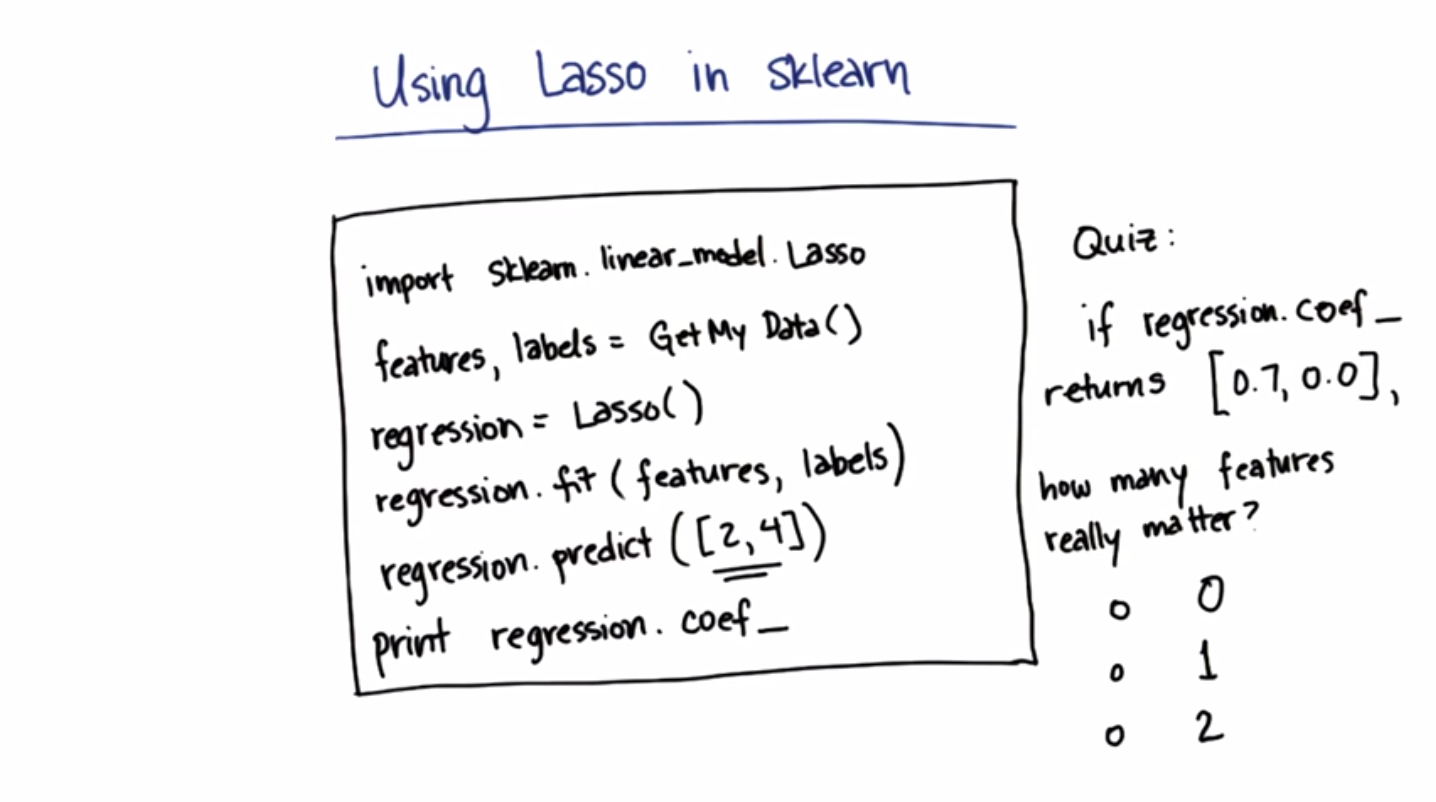 Using Lasso in sklearn
import sklearn.linear_model.Lasso
features, labels = GetMyData()
regression = Lasso()
regression.fit(features, labels)
regression.predict([2,4])
print regression.coef_
Quiz:
if regression.coef_
returns [0.7, 0.0],
how many features
really matter?
o 0
o 1
o 2